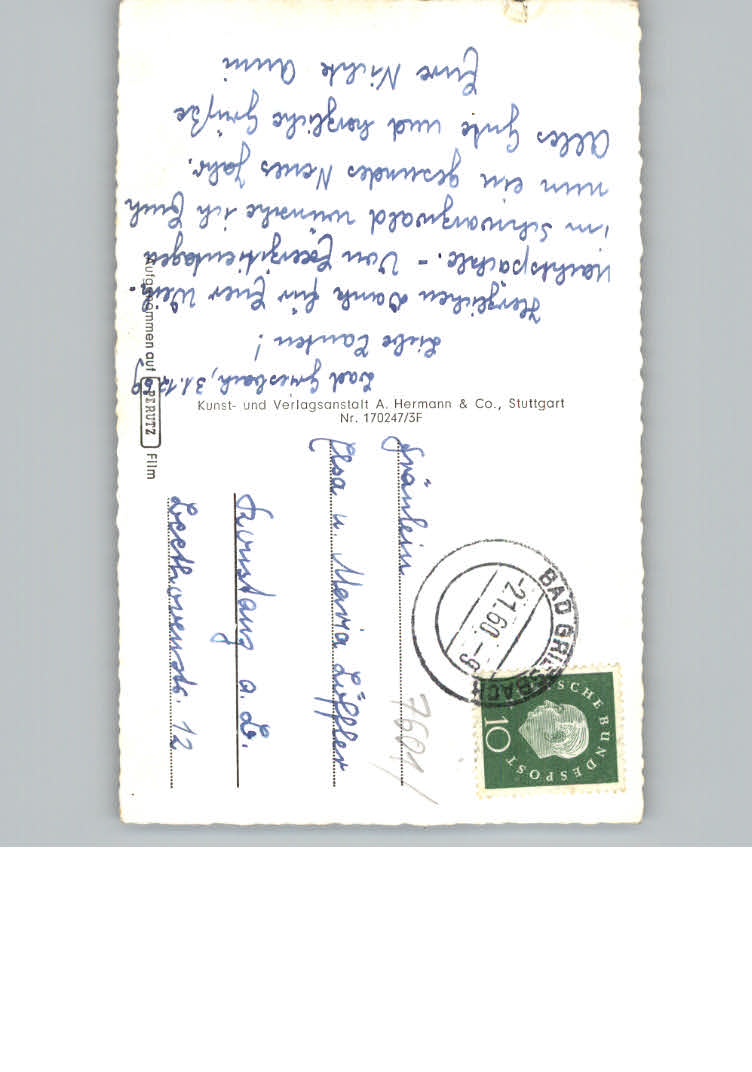 Bad Griesbach, 31.12.59
Liebe Tanten!
Herzlichen Dank für Euer Weih-
nachtspäckle. - Von Exerzitientagen
im Schwarzwald wünsche ich Euch
nun ein gesundes Neues Jahr.
Alles Gute und herzliche Grüße
Eure Nichte Anni
Aufgenommen auf PERUTZ Film
Kunst- und Verlagsanstalt A. Hermann & Co., Stuttgart
Nr. 170247/3F
Fräulein
Elsa u. Maria Löffler
Konstanz a. B.
Beethovenstr. 12
BAD GRIESBACH
-2.1.60.-9
DEUTSCHE BUNDESPOST
10